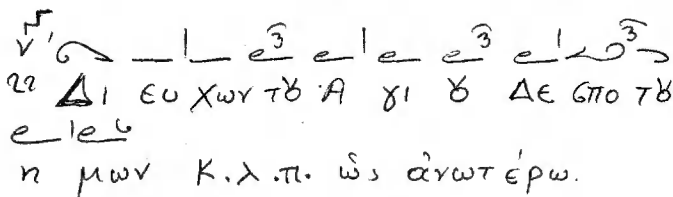 Δι ευ χων τȣ Α γι ȣ Δε σπο τȣ
η μων Κ.λ.π. ὡς ἀνωτέρω.